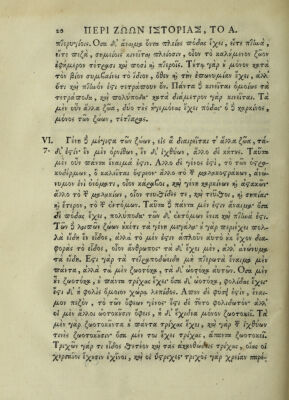 20 ΠΕΡΙ ΖΩΩΝ ΙΣΤΟΡΙΑΣ, ΤΟ Α.
πτερυγίοις. Ὅσα δ' ἄναιμα ὄντα πλείους πόδας ἔχει, εἴτε πτηνὰ,
εἴτε πεζὰ, σημείοις κινεῖται πλείοσιν, οἷον τὸ καλούμενον ζῶον
ἐφήμερον τέτταρσι καὶ ποσὶ καὶ πτεροῖς. Τούτῳ γὰρ οὐ μόνον κατὰ
τὸν βίον συμβαίνει τὸ ἴδιον, ὅθεν καὶ τὴν ἐπωνυμίαν ἔχει, ἀλλ'
ὅτι καὶ πτηνόν ἐστι τετράπουν ὄν. Πάντα δὲ κινεῖται ὁμοίως τὰ
τετράποδα, καὶ πολύποδα· κατὰ διάμετρον γὰρ κινεῖται. Τὰ
μὲν οὖν ἄλλα ζῶα, δύο τὰς ἡγεμόνας ἔχει πόδας· ὁ δὲ καρκίνος,
μόνος τῶν ζώων, τέτταρας.
VI. Γένη δὲ μέγιστα τῶν ζώων, εἰς ἃ διαιρεῖται τ' ἄλλα ζῶα, τά-
δ' ἐστίν· ἓν μὲν ὀρνίθων, ἓν δ' ἰχθύων, ἄλλο δὲ κήτους. Ταῦτα
μὲν οὖν πάντα ἔναιμά ἐστιν. Ἄλλο δὲ γένος ἐστὶ, τὸ τῶν ὀστρα-
κοδέρμων, ὃ καλεῖται ὄστρεον· ἄλλο τὸ τῶν μαλακοστράκων, ἀνώ-
νυμον ἑνὶ ὀνόματι, οἷον κάραβοι, καὶ γένη καρκίνων καὶ ἀστακῶν·
ἄλλο τὸ τῶν μαλακίων, οἷον τευθίδες τε, καὶ τεῦθοι, καὶ σηπίαι·
ἕτερον, τὸ τῶν ἐντόμων. Ταῦτα δὲ πάντα μέν ἐστιν ἄναιμα· ὅσα
δὲ πόδας ἔχει, πολύποδα· τῶν δ' ἐντόμων ἔνια καὶ πτηνά ἐστι.
Τῶν δὲ λοιπῶν ζώων οὐκέτι τὰ γένη μεγάλα· οὐ γὰρ περιέχει πολ-
λὰ εἴδη ἓν εἶδος, ἀλλὰ τὸ μέν ἐστιν ἁπλοῦν αὐτὸ οὐκ ἔχον διαφο-
ρὰς τὸ εἶδος, οἷον ἄνθρωπος· τὰ δ' ἔχει μὲν, ἀλλ' ἀνώνυμα
τὰ εἴδη. Ἔστι γὰρ τὰ τετράποδα μὴ πτερωτὰ ἔναιμα μὲν
πάντα, ἀλλὰ τὰ μὲν ζωοτόκα, τὰ δ' ὠοτόκα αὐτῶν. Ὅσα μὲν
οὖν ζωοτόκα, οὐ πάντα τρίχας ἔχει· ὅσα δ' ὠοτόκα, φολίδας ἔχει·
ἐστὶ δ' ἡ φολὶς ὅμοιον χώρᾳ λεπίδος. Ἄπουν δὲ φύσει ἐστὶν, ἔναι-
μον πεζὸν, τὸ τῶν ὄφεων γένος· ἐστὶ δὲ τοῦτο φολιδωτόν· ἀλλ'
οἱ μὲν ἄλλοι ὠοτοκοῦσιν ὄφεις, ἡ δ' ἔχιδνα μόνον ζωοτοκεῖ. Τὰ
μὲν γὰρ ζωοτοκοῦντα οὐ πάντα τρίχας ἔχει, καὶ γὰρ τῶν ἰχθύων
τινὲς ζωοτοκοῦσιν· ὅσα μέν τοι ἔχει τρίχας, ἅπαντα ζωοτοκεῖ.
Τριχῶν γάρ τι εἶδος θετέον καὶ τὰς ἀκανθώδεις τρίχας, οἵας οἱ
χερσαῖοι ἔχουσιν ἐχῖνοι, καὶ οἱ ὕστριχες· τριχὸς γὰρ χρείαν παρέ-